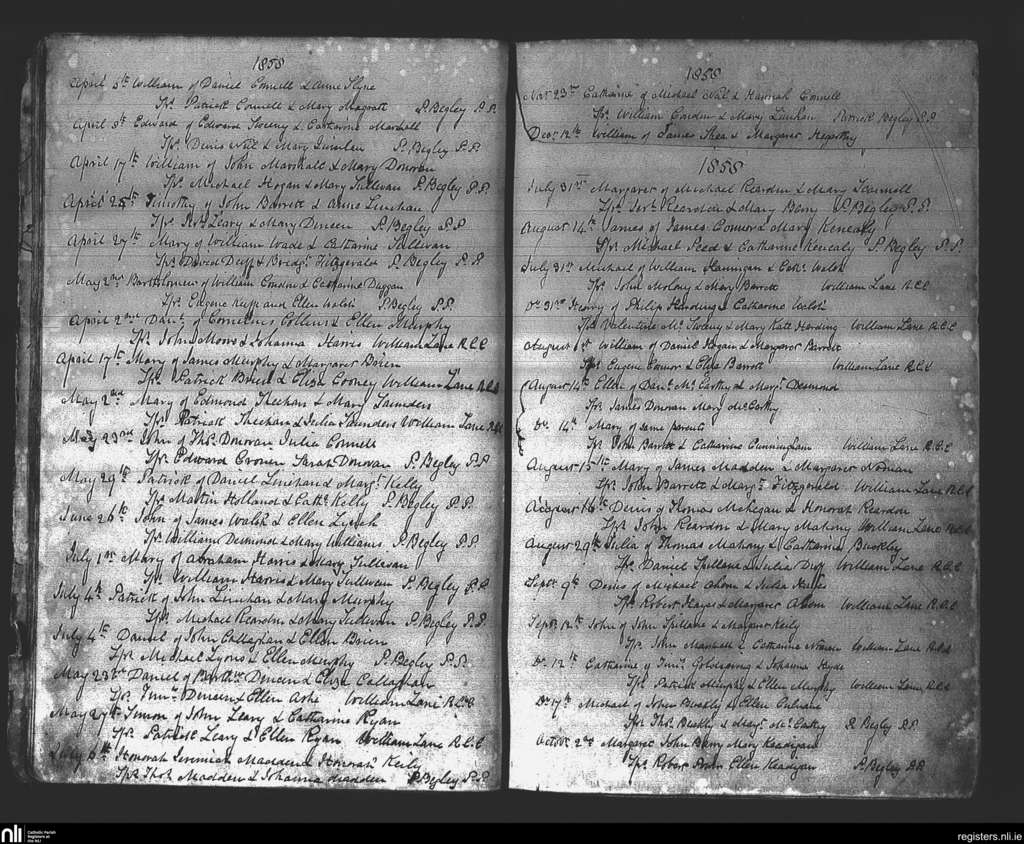 1858
April 5th William of Daniel Connell & Anne Slyne
Sprs Patrick Connell & Mary Magrath P. Begley P.P.
April 8th Edward of Edward Sweeny & Catharine Marshall
Sprs Denis Neil & Mary Quinlan P. Begley P.P.
April 17th William of John Marshall & Mary Donovan
Sprs Michael Hogan & Mary Sullivan P. Begley P.P.
April 25th Timothy of John Barrett & Anne Linehan
Sprs Leary & Mary Dineen P. Begley P.P.
April 27th Mary of William Wade & Catharine Sullivan
Sprs David Duff & Bridgt Fitzgerald P. Begley P.P.
May 2nd Bartholomew of William Condon & Catharine Duggan
Sprs Eugene and Ellen Walsh P. Begley P.P.
April 2nd Danl of Cornelius Collins & Ellen Murphy
Sprs John Moore & Johanna Harris William Lane R.C.C
April 17th Mary of James Murphy & Margaret Brien
Sprs Patrick Brien & Eliza Cooney William Lane R.C.C
May 2nd Mary of Edmond Sheehan & Mary Saunders
Sprs Patrick Sheehan & Julia Saunders William Lane
May 23rd John of Thos Donovan Julia Connell
Sprs Edward Cronin Sarah Donovan P. Begley P.P
May 29th Patrick of Daniel Linehan & Margt Kelly
Sprs Martin Holland & Cathe Kelly P. Begley P.P.
June 26th John of James Walsh & Ellen Lynch
Sprs William Desmond & Mary Williams P. Begley P.P.
July 1st Mary of Abraham Harris & Mary Sullivan
Sprs William Harris & Mary Sullivan P. Begley P.P
July 4th Patrick of John Linehan & Mary Murphy
Sprs Michael Reardon & Mary Sullivan P. Begley P.P.
July 4th Daniel of John Callaghan & Ellen Brien
Sprs Michael Lyons & Ellen Murphy P. Begley P.P.
May 23rd Daniel of Barthw Dineen & Eliza Callaghan
Sprs Timy Dineen & Ellen Ashe William Lane R.C.C
May 27th Simon of John Leary & Catharine Ryan
Sprs Patrick Leary & Ellen Ryan William Lane R.C.C
July 6th Honorah Jeremiah Madden & Honorah Keily
Sprs Thos Madden & Johanna Madden P. Begley P.P
1858
Novr 23rd Catharine of Michael Neil & Hannah Connell
Sprs William Condon & Mary Linehan Patrick Begley P.P
Decr 12th William of James Shea & Margaret Hegarthy
1858
July 31st Margaret of Michael Reardon & Mary Scannell
Sprs Jerh Reardon & Mary Berry P. Begley P.P.
August 14th James of James Connor & Mary Kenealy
Sprs Michael Reed & Catharine Kenealy P. Begley P.P.
July 31st Michael of William Flannigan & Cathe Walsh
Sprs John Molony & Mary Barrett William Lane R.C.C
Do 31st Henry of Philip Harding & Catharine Walsh
Sprs Valentine McSweeny & Mary Kate Harding William Lane R.C.C
August 1st William of Daniel Regan & Margaret Barrett
Sprs Eugene Connor & Eliza Barrett William Lane R.C.C
August 14th Ellen of Danl McCarthy & Margt Desmond
Sprs James Donovan Mary McCarthy
Do 14th Mary of same parents
Sprs John Barrett & Catharine Cunningham William Lane R.C.C
August 15th Mary of James Madden & Margaret Noonan
Sprs John Barrett & Margt Fitzgerald William Lane R.C.C
August 16th Denis of Thomas Mehegan & Honorah Reardon
Sprs John Reardon & Mary Mahony William Lane R.C.C
August 29th Julia of Thomas Mahony & Catharine Buckley
Sprs Daniel Spillane & Julia Duff William Lane R.C.C
Septr 9th Denis of Michael Ahern & Julia
Sprs Robert Hayes & Margaret Ahern William Lane R.C.C
Septr 12th John of John Spillane & Margaret Keily
Sprs John Marshall & Catharine Noonan William Lane R.C.C
Do 12th Catharine of Goldspring & Johanna Hyde
Sprs Patrick Murphy & Ellen Murphy William Lane R.C.C
Do 17th Michael of John Buckley & Ellen Culinane
Sprs Thos Buckley & Margt McCarthy P. Begley P.P.
Octobr 2nd Margaret John Barry Mary Keadigan
Sprs Robert Ellen Keadigan P. Begley P.P.
nli
Catholic Parish
Registers at
the NLI
registers.nli.ie